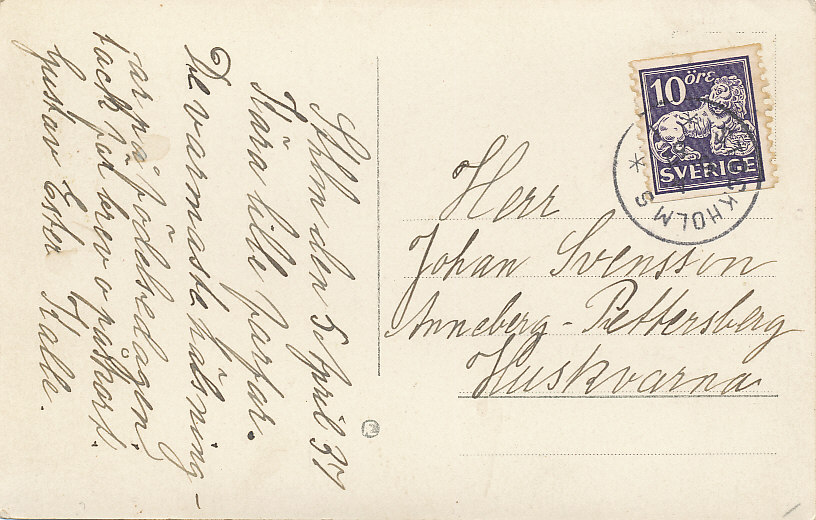 Sthlm den 5 April 37
Kära lille farfar.
De varmaste hälsning-
ar på födelsedagen
tack för brev o påskkort.
Gustav Ester Kalle.
10 öre
SVERIGE
STOCKHOLM 5
Herr
Johan Svensson
Anneberg - Pettersberg
Huskvarna